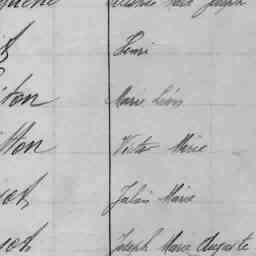 Marie Joseph
Henri
ton Marie Léon
tton Victor Marie
Julien Marie
Joseph Marie Auguste